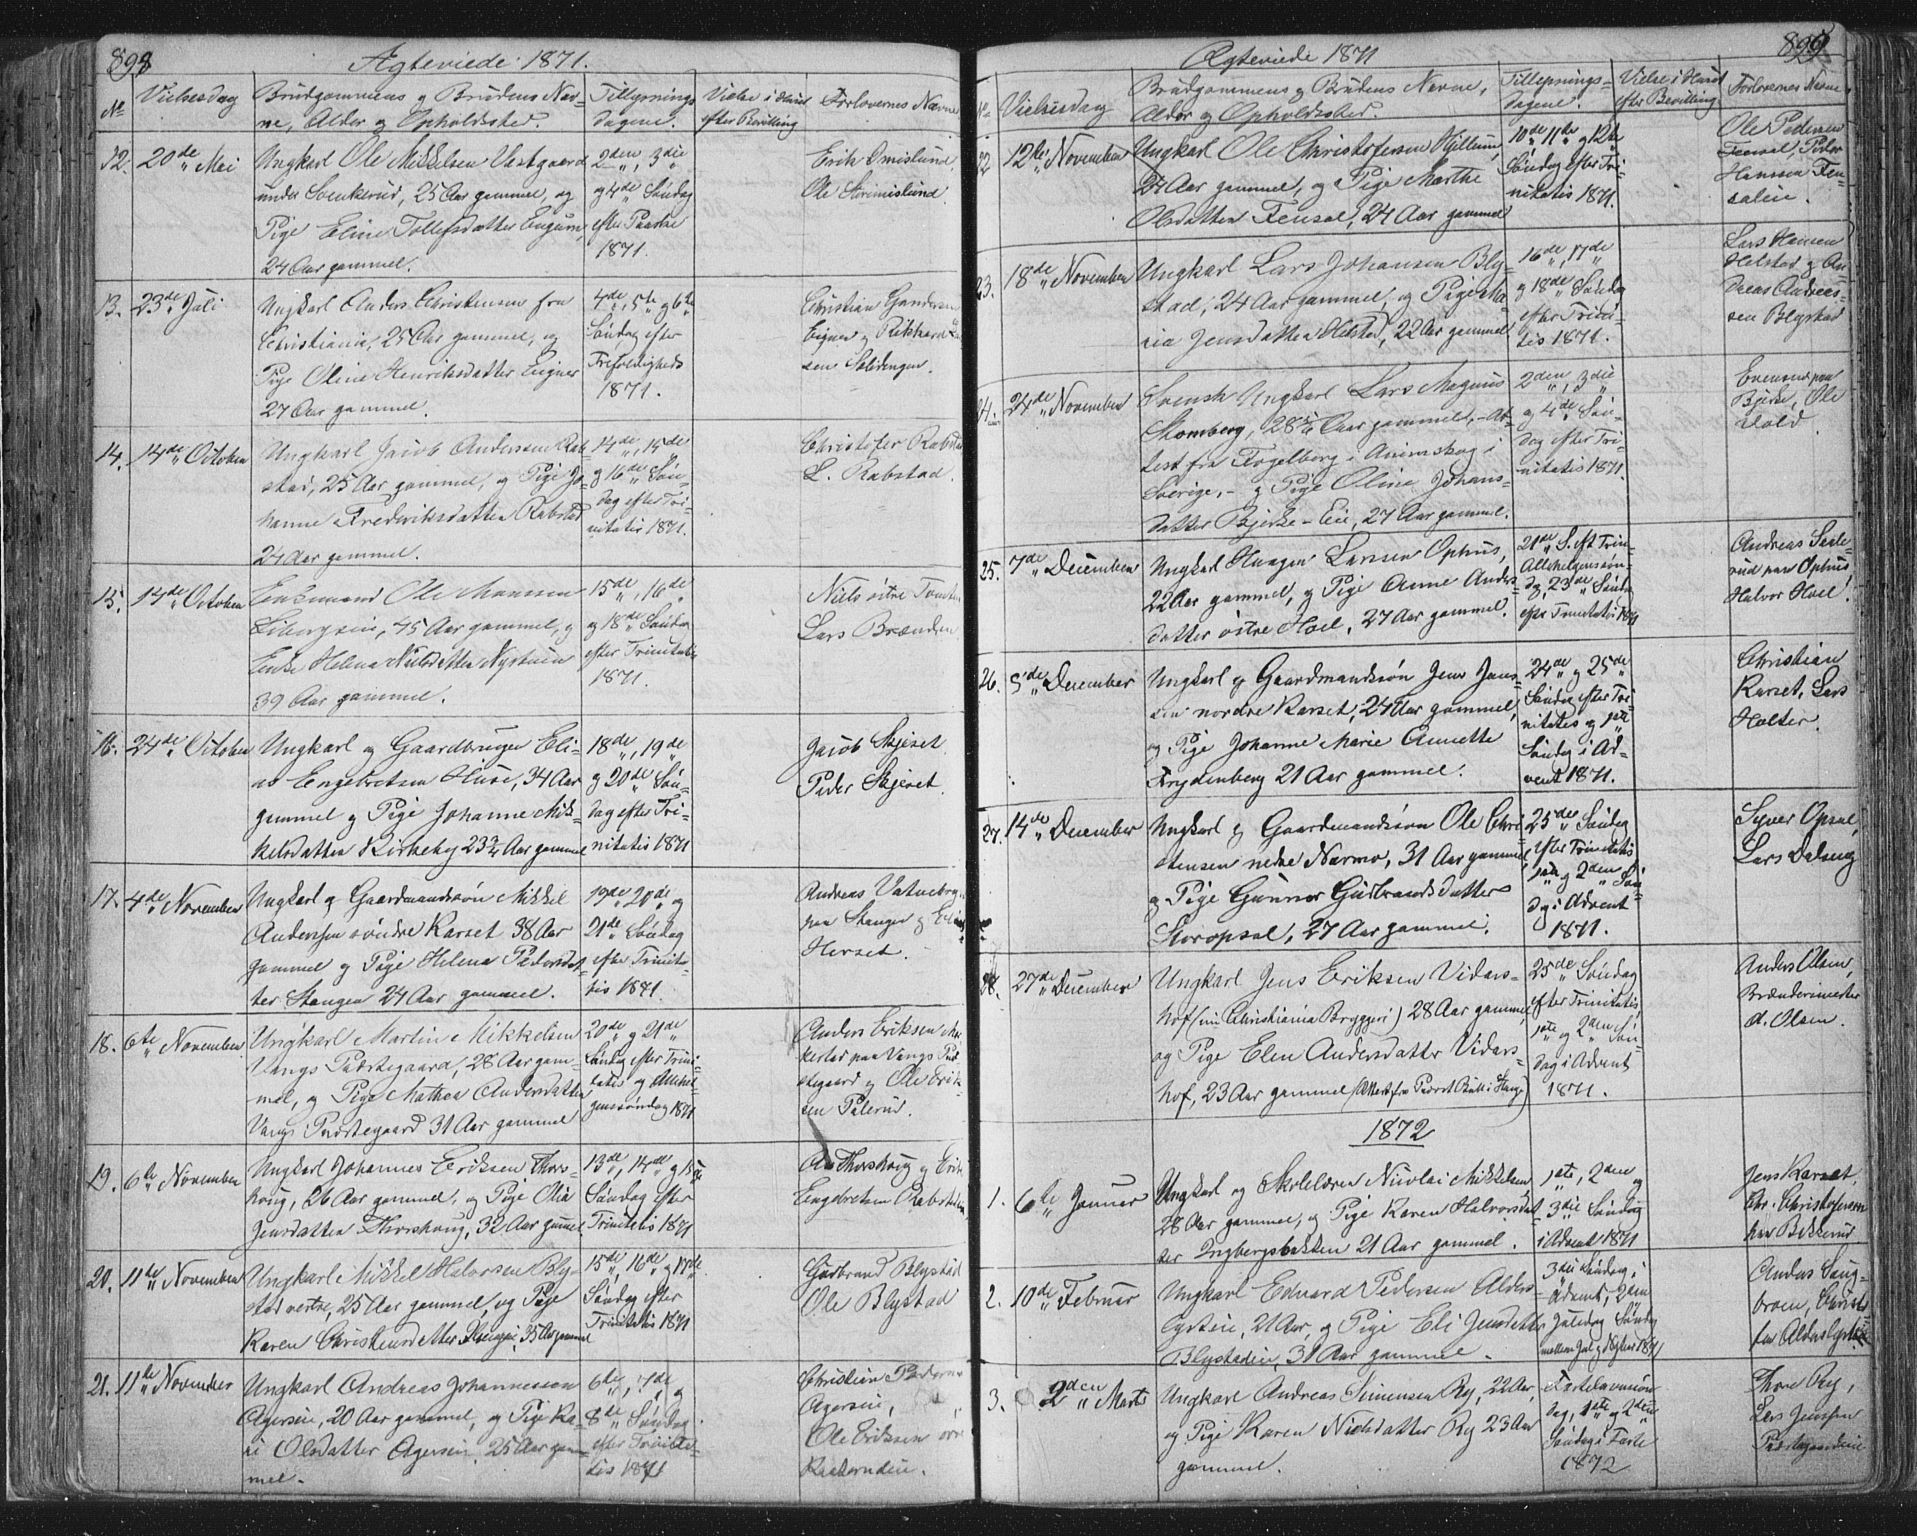 898
Ægteviede 1871.
No
Vielsesdag
Brudgommens og Brudens Nav-
ne, Alder og Opholdssted.
Tillysnings
dagene.
Vielse i Huus
efter Bevilling
Forlovernes Navne
12. 20de Mai
Ungkarl Ole Mikkelsen Vestgaard
under Svenkerud, 25 Aar gammel, og
Pige Eline Tollefsdatter Engum,
24 Aar gammel.
2den, 3die
og 4de Søndag
efter Paaske
1871.
Erik
Ole
13. 23de Juli
Ungkarl Anders Christensen fra
Christiania, 25 Aar gammel, og
Pige Oline Henriksdatter Eigner
27 Aar gammel.
4de, 5te og 6te
Søndag efter
Trefoldigheds
1871.
Christian Gundersen
Eigner og Rikhard
sen
14. 14de October
Ungkarl Jacob Andersen Rab-
stad, 25 Aar gammel, og Pige Jo-
hanne Frederiksdatter Rabstad
24 Aar gammel.
14de, 15de
og 16de Søn-
dag efter Tri-
nitatis 1871.
Christofer Rabstad
L. Rabstad.
15. 14de October
Enkemand Ole Hansen
Libergseie, 45 Aar gammel, og
Enke Helena Nielsdatter Nystuen
39 Aar gammel.
15de, 16de
og 18de Søndag
efter Trinitatis
1871.
Niels østre
Lars Brænden
16. 24de October
Ungkarl og Gaardbruger Eli-
as Engebretsen Huse, 34 Aar
gammel og Pige Johanne Mik-
kelsdatter Kirkeby 23 3/4 Aar gammel
18de, 19de
og 20de Søn-
dag efter Tri-
nitatis 1871
Jacob Skjeset
Peder Skjeset.
17. 4de November
Ungkarl og Gaardmandssøn Mikkel
Andersen søndre Karset 38 Aar
gammel og Pige Helena Pedersdat-
ter Stangen 24 Aar gammel.
19de 20de og
21de Søndag
efter Trinita-
tis 1871.
Andreas
paa Stangen og
Herset.
18. 6te November
Ungkarl Martin Mikkelsen
Vangs Præstegaard, 28 Aar gam-
mel, og Pige Mathea Andersdatter
Vangs Præstegaard 31 Aar gammel
20de og 21de
Søndag efter Trini-
tatis og Allehel-
genssøndag 1871
Anders Eriksen
paa Vangs Præ-
stegaard og Ole Erik-
sen
19. 6te November
Ungkarl Johannes Eriksen Thors-
houg, 26 Aar gammel, og Pige Olia
Jensdatter Thorshoug, 32 Aar gammel
13de, 14de og 15de
Søndag efter
Trinitatis 1871
Thorshoug og Erik
Engebretsen
20. 11te November
Ungkarl Mikkel Halvorsen Bly-
stad vestre, 25 Aar gammel, og Pige
Karen Christiansdatter 35 Aar gammel
15de, 16de og 17de
Søndag efter
Trinitatis 1871
Gudbrand Blystad
Ole Blystad
21. 11te November
Ungkarl Andreas Johannesen
Agerseie, 20 Aar gammel, og Pige Ka-
ri Olsdatter Agerseie, 25 Aar gam-
mel.
6te, 7de og
8de Søndag
efter Trinita-
tis 1871
Christian Pedersen
Agerseie,
Ole Eriksen
899
Ægteviede 1871
No
Vielsesdag
Brudgommens og Brudens Navne,
Alder og Opholdssted.
Tillysnings-
dagene.
Vielse i Huus
efter Bevilling
Forlovernes Navne
22 12te November
Ungkarl Ole Christofersen Kjillum,
24 Aar gammel, og Pige Marthe
Olsdatter Fensal, 24 Aar gammel
10de 11te og 12te
Søndag efter Tri-
nitatis 1871.
Ole Pedersen
Fensal, Peder
Hansen Fen-
saleie.
23. 18de November
Ungkarl Lars Johansen Bly-
stad, 24 Aar gammel, og Pige Ma-
ria Jensdatter Helstad, 22 Aar gammel
16de, 17de
og 18de Søndag
efter Trini-
tatis 1871.
Lars Hansen
Helstad og An-
dreas Andreas-
sen Blystad
24. 24de November
Svensk Ungkarl Lars Magnus
Stomberg, 28 Aar gammel, - At-
test fra Fogelberg i Animskog i
Sverige, - og Pige Oline Johans-
datter Bjerke-Eie, 27 Aar gammel.
2den, 3die
og 4de Søn-
dag efter Tri-
nitatis 1871.
Evensen paa
Bjerke, Ole
Hold
25. 7de December
Ungkarl Haagen Larsen Ophus,
22 Aar gammel, og Pige Anne Anders-
datter østre Hoel, 27 Aar gammel.
21de S. eft Trin-
Allehelgenssøn-
dag, 23de Søndag
efter Trinitatis 1871
Andreas Sæte-
rud paa Ophus
Halvor Hoel.
26. 5de December
Ungkarl og Gaardmandssøn Jens Jens-
sen nordre Karset, 24 Aar gammel,
og Pige Johanne Marie Annette
Frydenberg 21 Aar gammel.
24de og 25de
Søndag efter Tri-
nitatis og 1ste
Søndag i Ad-
vent 1871.
Christian
Karset, Lars
Holter.
27. 14de December
Ungkarl og Gaardmandssøn Ole Chri-
stensen nedre Narmo, 31 Aar gammel,
og Pige Gunnor Gudbrandsdatter
Storopsal, 27 Aar gammel.
25de Søndag
efter Trinitatis
1ste og 2den Søn-
dag i Advent
1871.
Syver Opsal,
Lars Dalseng
28. 27de December
Ungkarl Jens Eriksen Vidars-
hof (nu Christiania Bryggeri) 28 Aar gammel,
og Pige Elen Andersdatter Vidars-
hof, 23 Aar gammel (Attest fra Præst Bull i Stange)
25de Søndag
efter Trinitatis
1ste og 2den Søn-
dag i Advent
1871.
Anders Olsen,
Brænderimester
A. Olsen.
1872
1. 6te Januar
Ungkarl og Skolelærer Nicolai Mikkelsen
28 Aar gammel, og Pige Karen Halvorsdat-
ter Ingbergsbakken 21 Aar gammel.
1ste, 2den og
3die Søndag
i Advent 1871
Jens Karset,
Chr. Christofersen
paa Bekkerud
2. 10de Februar
Ungkarl Edvard Pedersen Alders-
lysteie, 21 Aar, og Pige Eli Jensdatter
Blystadeie, 31 Aar gammel.
3die Søndag i
Advent, 2den
Juledag Søndag
mellem Jul og Nytaar 1871
Anders Saug-
broen, Christo-
fer Alderslysteie
3. 2den Marts
Ungkarl Andreas Simensen Ry, 22 Aar,
og Pige Karen Nielsdatter Ry 23 Aar
gammel.
Fastelavnssøn-
dag, 1ste og 2den
Søndag i Faste
1872
Thore Ry,
Lars Jenssen
Præstegaardseie